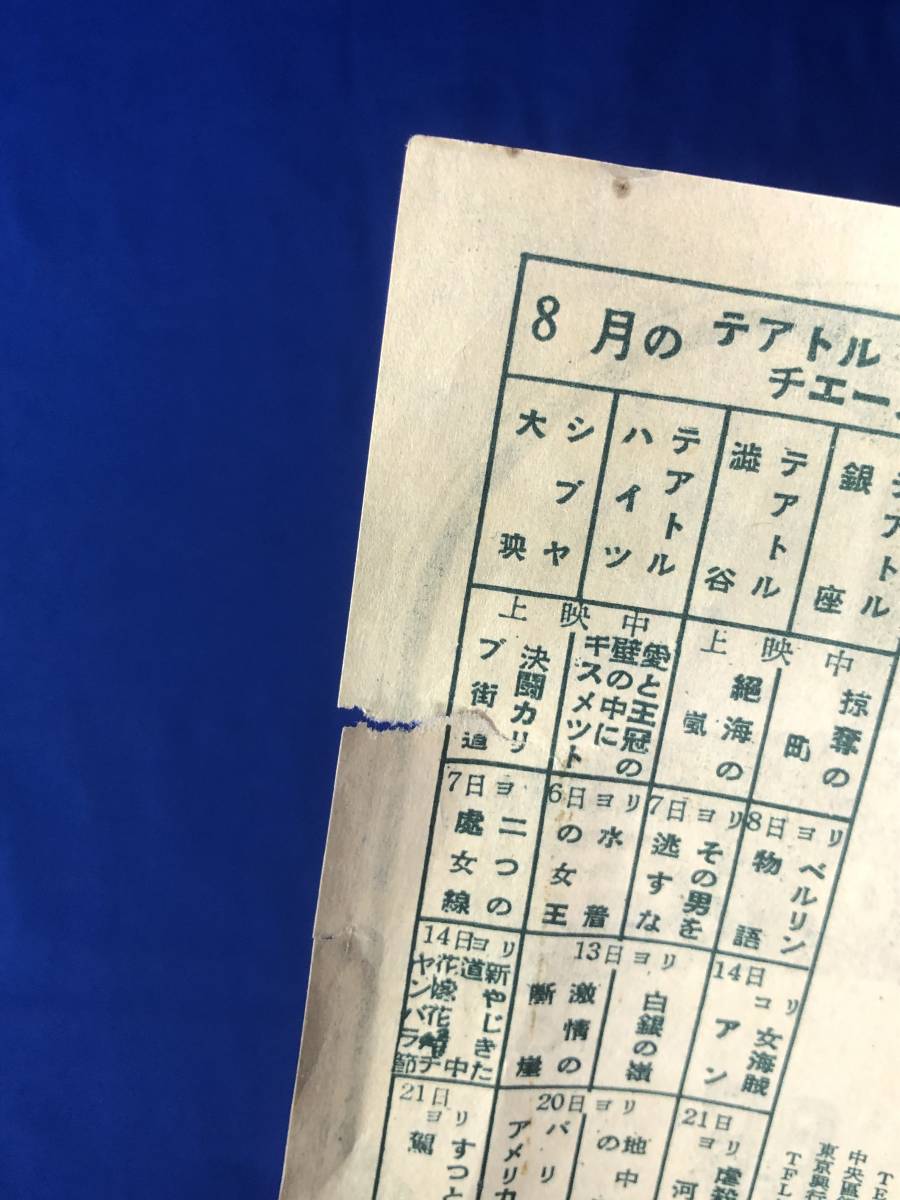 8月のテアトル
チエー
テアトル
銀座
テアトル
澁谷
テアトル
ハイツ
シブヤ
大映
上映中
掠奪の
町
絕海の
嵐
上映中
愛と王冠の
壁の中に
キスメツト
決闘カリ
ブ街道
8日ヨリ
ベルリン
物語
7日ヨリ
その男を
逃すな
6日ヨリ
水着
の女王
7日ヨリ
二つの
處女線
14日ヨリ
女海賊
アン
13日ヨリ
白銀の嶺
激情の
断崖
14日ヨリ
新やじきた
道中
花嫁花婿チ
ヤンバラ節
21日ヨリ
虐殺
河
20日ヨリ
地中
の
パリ
アメリカ
21日ヨリ
すつと
駕
中央區
東京興行
TEL